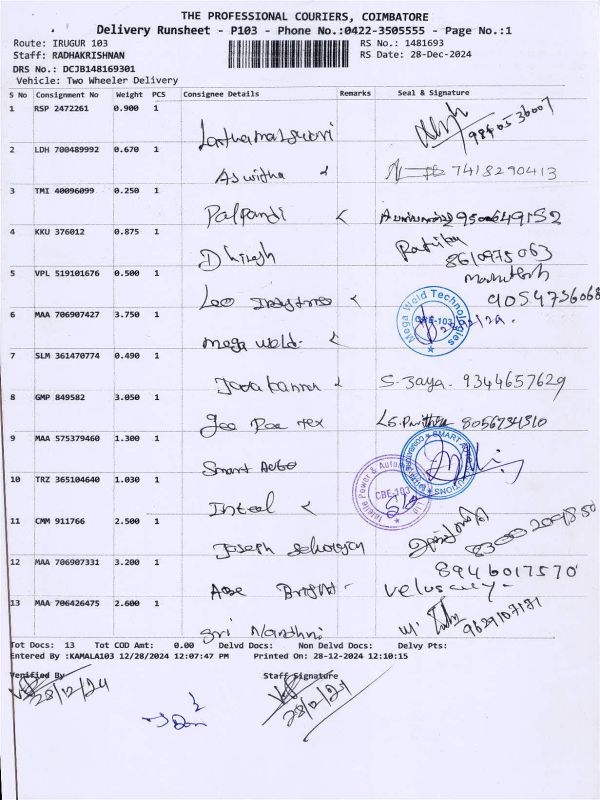 THE PROFESSIONAL COURIERS, COIMBATORE
Delivery Runsheet - P103 - Phone No.:0422-3505555 - Page No.:1
Route: IRUGUR 103 RS No.: 1481693
Staff: RADHAKRISHNAN RS Date: 28-Dec-2024
DRS No.: DCJB148169301
Vehicle: Two Wheeler Delivery
S No Consignment No Weight PCS Consignee Details Remarks Seal & Signature
1 RSP 2472261 0.900 1
2 LDH 700489992 0.670 1 Aswitha 7418290413
3 TMI 40096099 0.250 1 Palpandi 9500649152
4 KKU 376012 0.875 1 Dhinesh 8610975063
5 VPL 519101676 0.500 1 Leo 9054736068
6 MAA 706907427 3.750 1 Mega Weld. Mega Weld Technologies CBE-103
7 SLM 361470774 0.490 1 S. Jaya. 9344657629
8 GMP 849582 3.050 1 Tex 8056734310
9 MAA 575379460 1.300 1 Smart Auto SMART AUTO
10 TRZ 365104640 1.030 1 Intel CBE-103
11 CMM 911766 2.500 1 Joseph
12 MAA 706907331 3.200 1 Bright 8946017570
13 MAA 706426475 2.600 1 Sri 9629107181
Tot Docs: 13 Tot COD Amt: 0.00 Delvd Docs: Non Delvd Docs: Delvy Pts:
Entered By :KAMALA103 12/28/2024 12:07:47 PM Printed On: 28-12-2024 12:10:15
Verified By Staff Signature
28/12/24 28/12/24